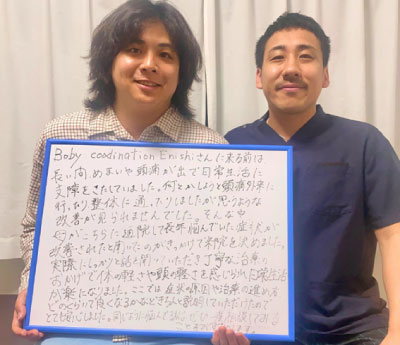 Boby coodination Enishiさんに来る前は、
長い間めまいや頭痛が出て日常生活に
支障をきたしていました。何とかしようと頭痛外来に
行ったり整体に通ったりしましたが思うような
改善が見られませんでした。そんな中
母がこちらに通院して長年悩んでいた症状が
改善されたと聞いたのがきっかけで来院を決めました。
実際にしっかり話を聞いていただき丁寧な治療の
おかげで体の軽さや頭の軽さを感じられ日常生活
が楽になりました。ここでは症状の原因や治療の進め方
どうしたら良くなるかなどきちんと説明していただけたので
とても安心しました。同じように悩んで